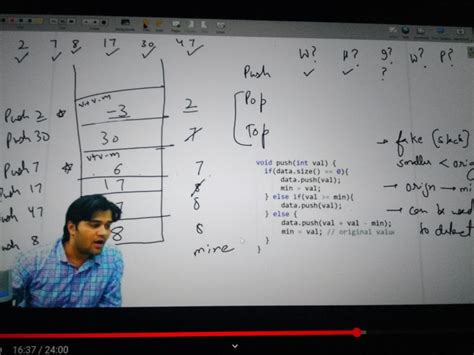 2 7 8 17 30 47
W? H? 9? W? P?
?
Push
Pop
Top
Push 2
Push 30
Push 7
Push 17
Push 47
Push 8
v+v-m
-3
30
v+v-m
6
17
8
2
7
7
8
8
8
mine
void push(int val) {
if(data.size() == 0){
data.push(val);
min = val;
} else if(val >= min){
data.push(val);
} else {
data.push(val + val - min);
min = val; // original value
}
}
→ fake
smaller < orig
→ orign → m
→ can be used
to detect
16:37 / 24:00